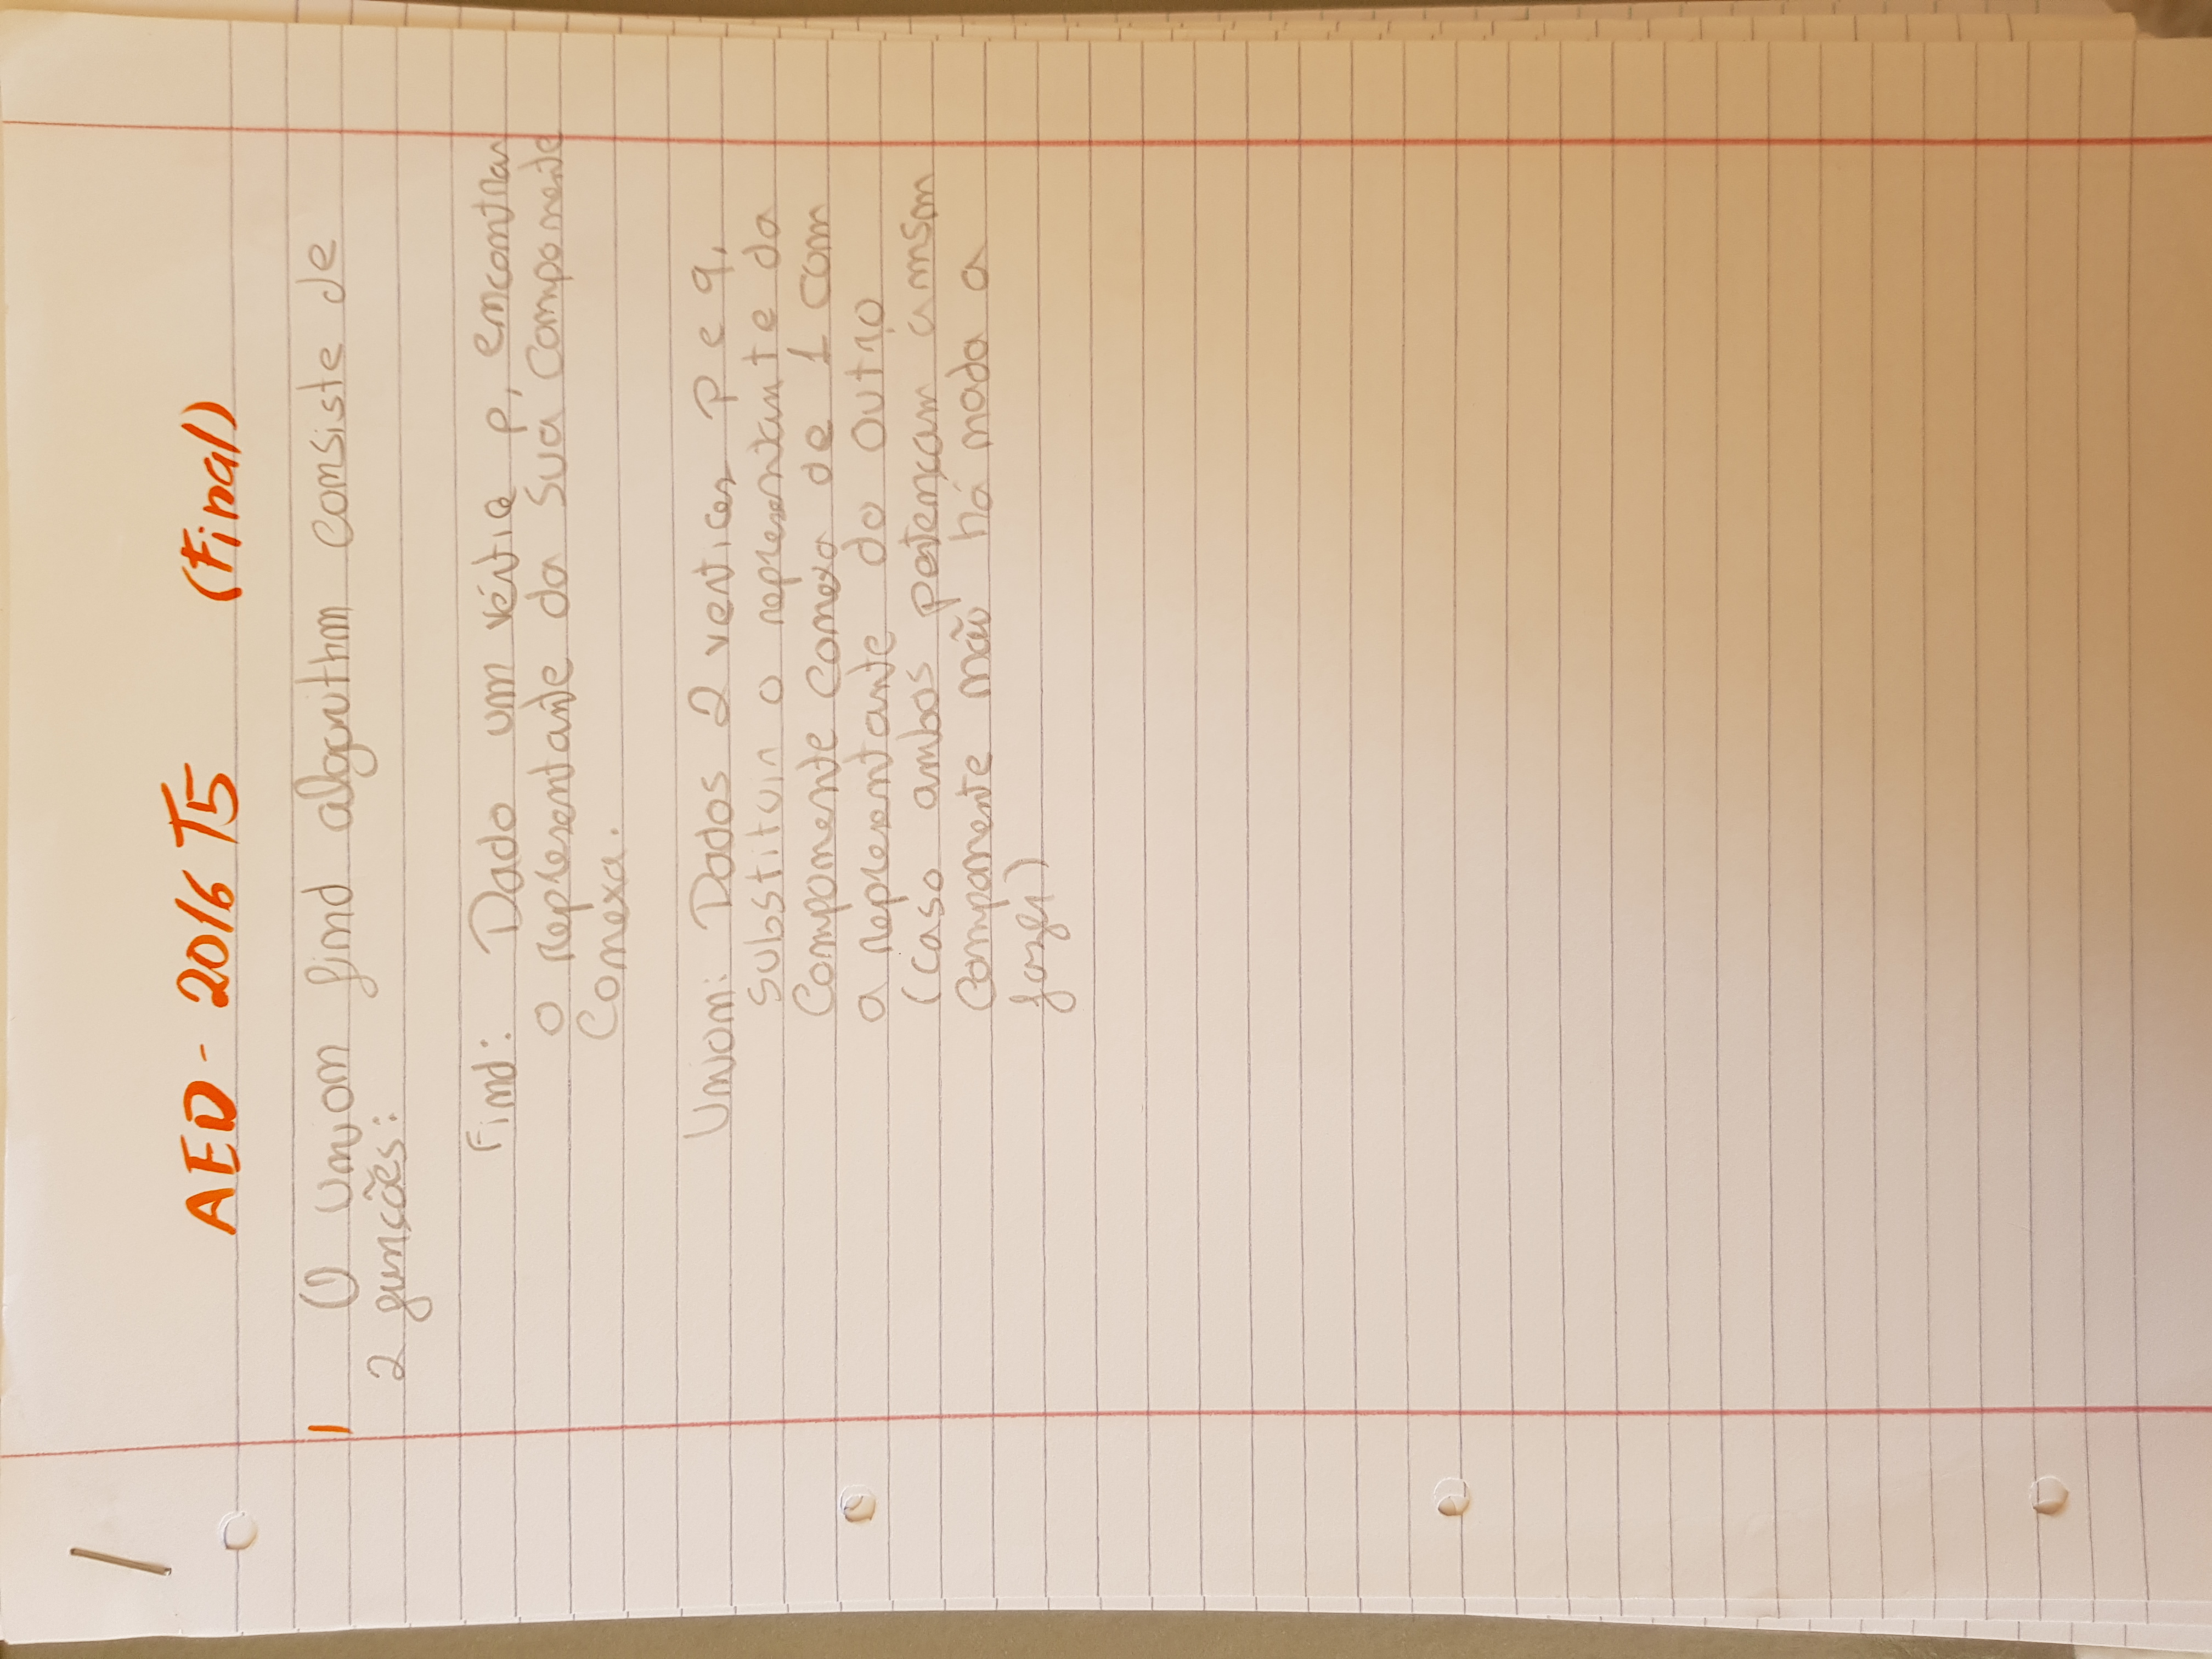 AED - 2016 T5 (Final)
1 O union find algorithm consiste de
2 funções:
Find: Dado um vértice p, encontrar
o representante da sua componente
conexa.
Union: Dados 2 vertices p e q,
substituir o representante da
componente conexa de 1 com
a representante do outro
(caso ambos pertençam à msm
componente não há nada a
fazer)